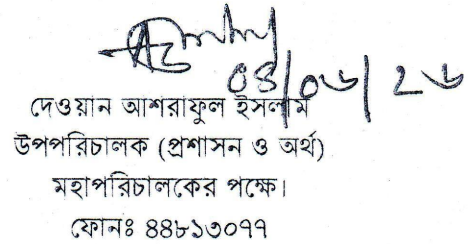 ০৪/০৬/২৬
দেওয়ান আশরাফুল ইসলাম
উপপরিচালক (প্রশাসন ও অর্থ)
মহাপরিচালকের পক্ষে।
ফোনঃ ৪৪৮১৩০৭৭